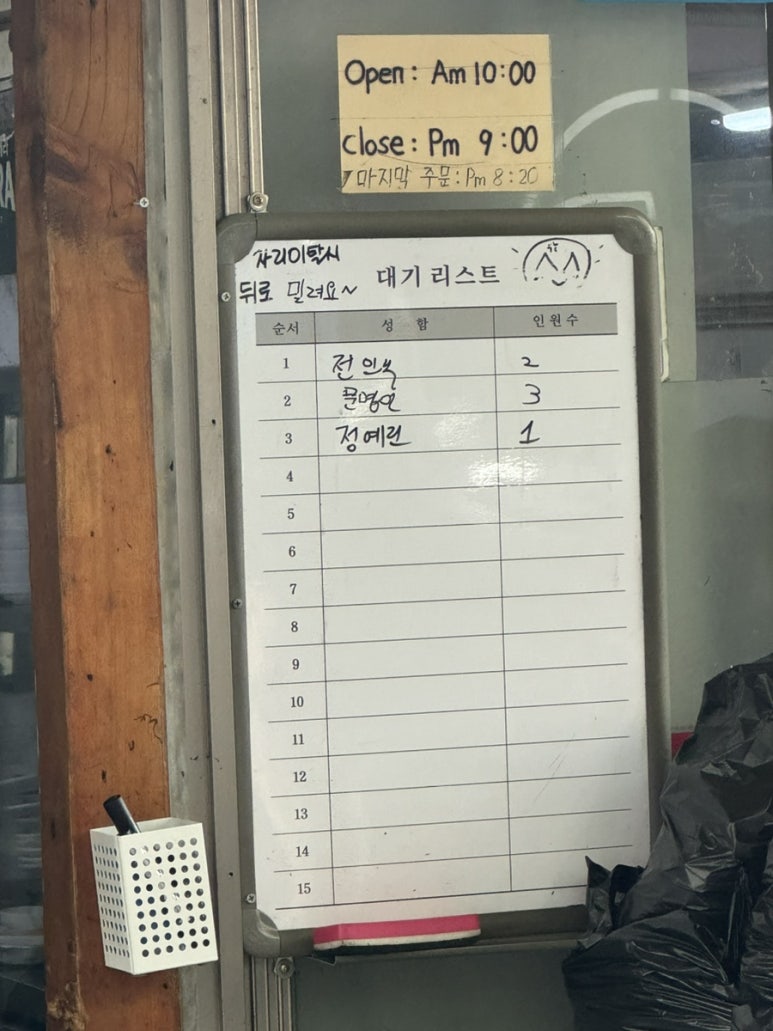 Open: Am 10:00
Close: Pm 9:00
마지막 주문: Pm 8:20
자리이탈시
뒤로 밀려요~
대기 리스트
순서 성 함 인원수
1 2
2 문명연 3
3 정예린 1
4
5
6
7
8
9
10
11
12
13
14
15